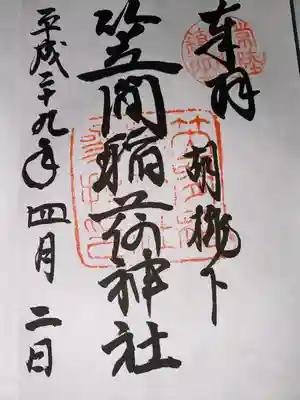 奉拝
胡桃下
笠間稲荷神社
平成二十九年四月二日